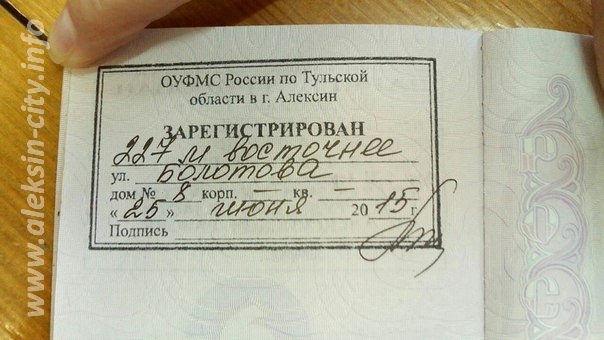 ОУФМС России по Тульской
области в г. Алексин
ЗАРЕГИСТРИРОВАН
227 м восточнее
ул. Болотова
дом № 8 корп. – кв. –
« 25 » июня 20 15 г.
Подпись
www.aleksin-city.info